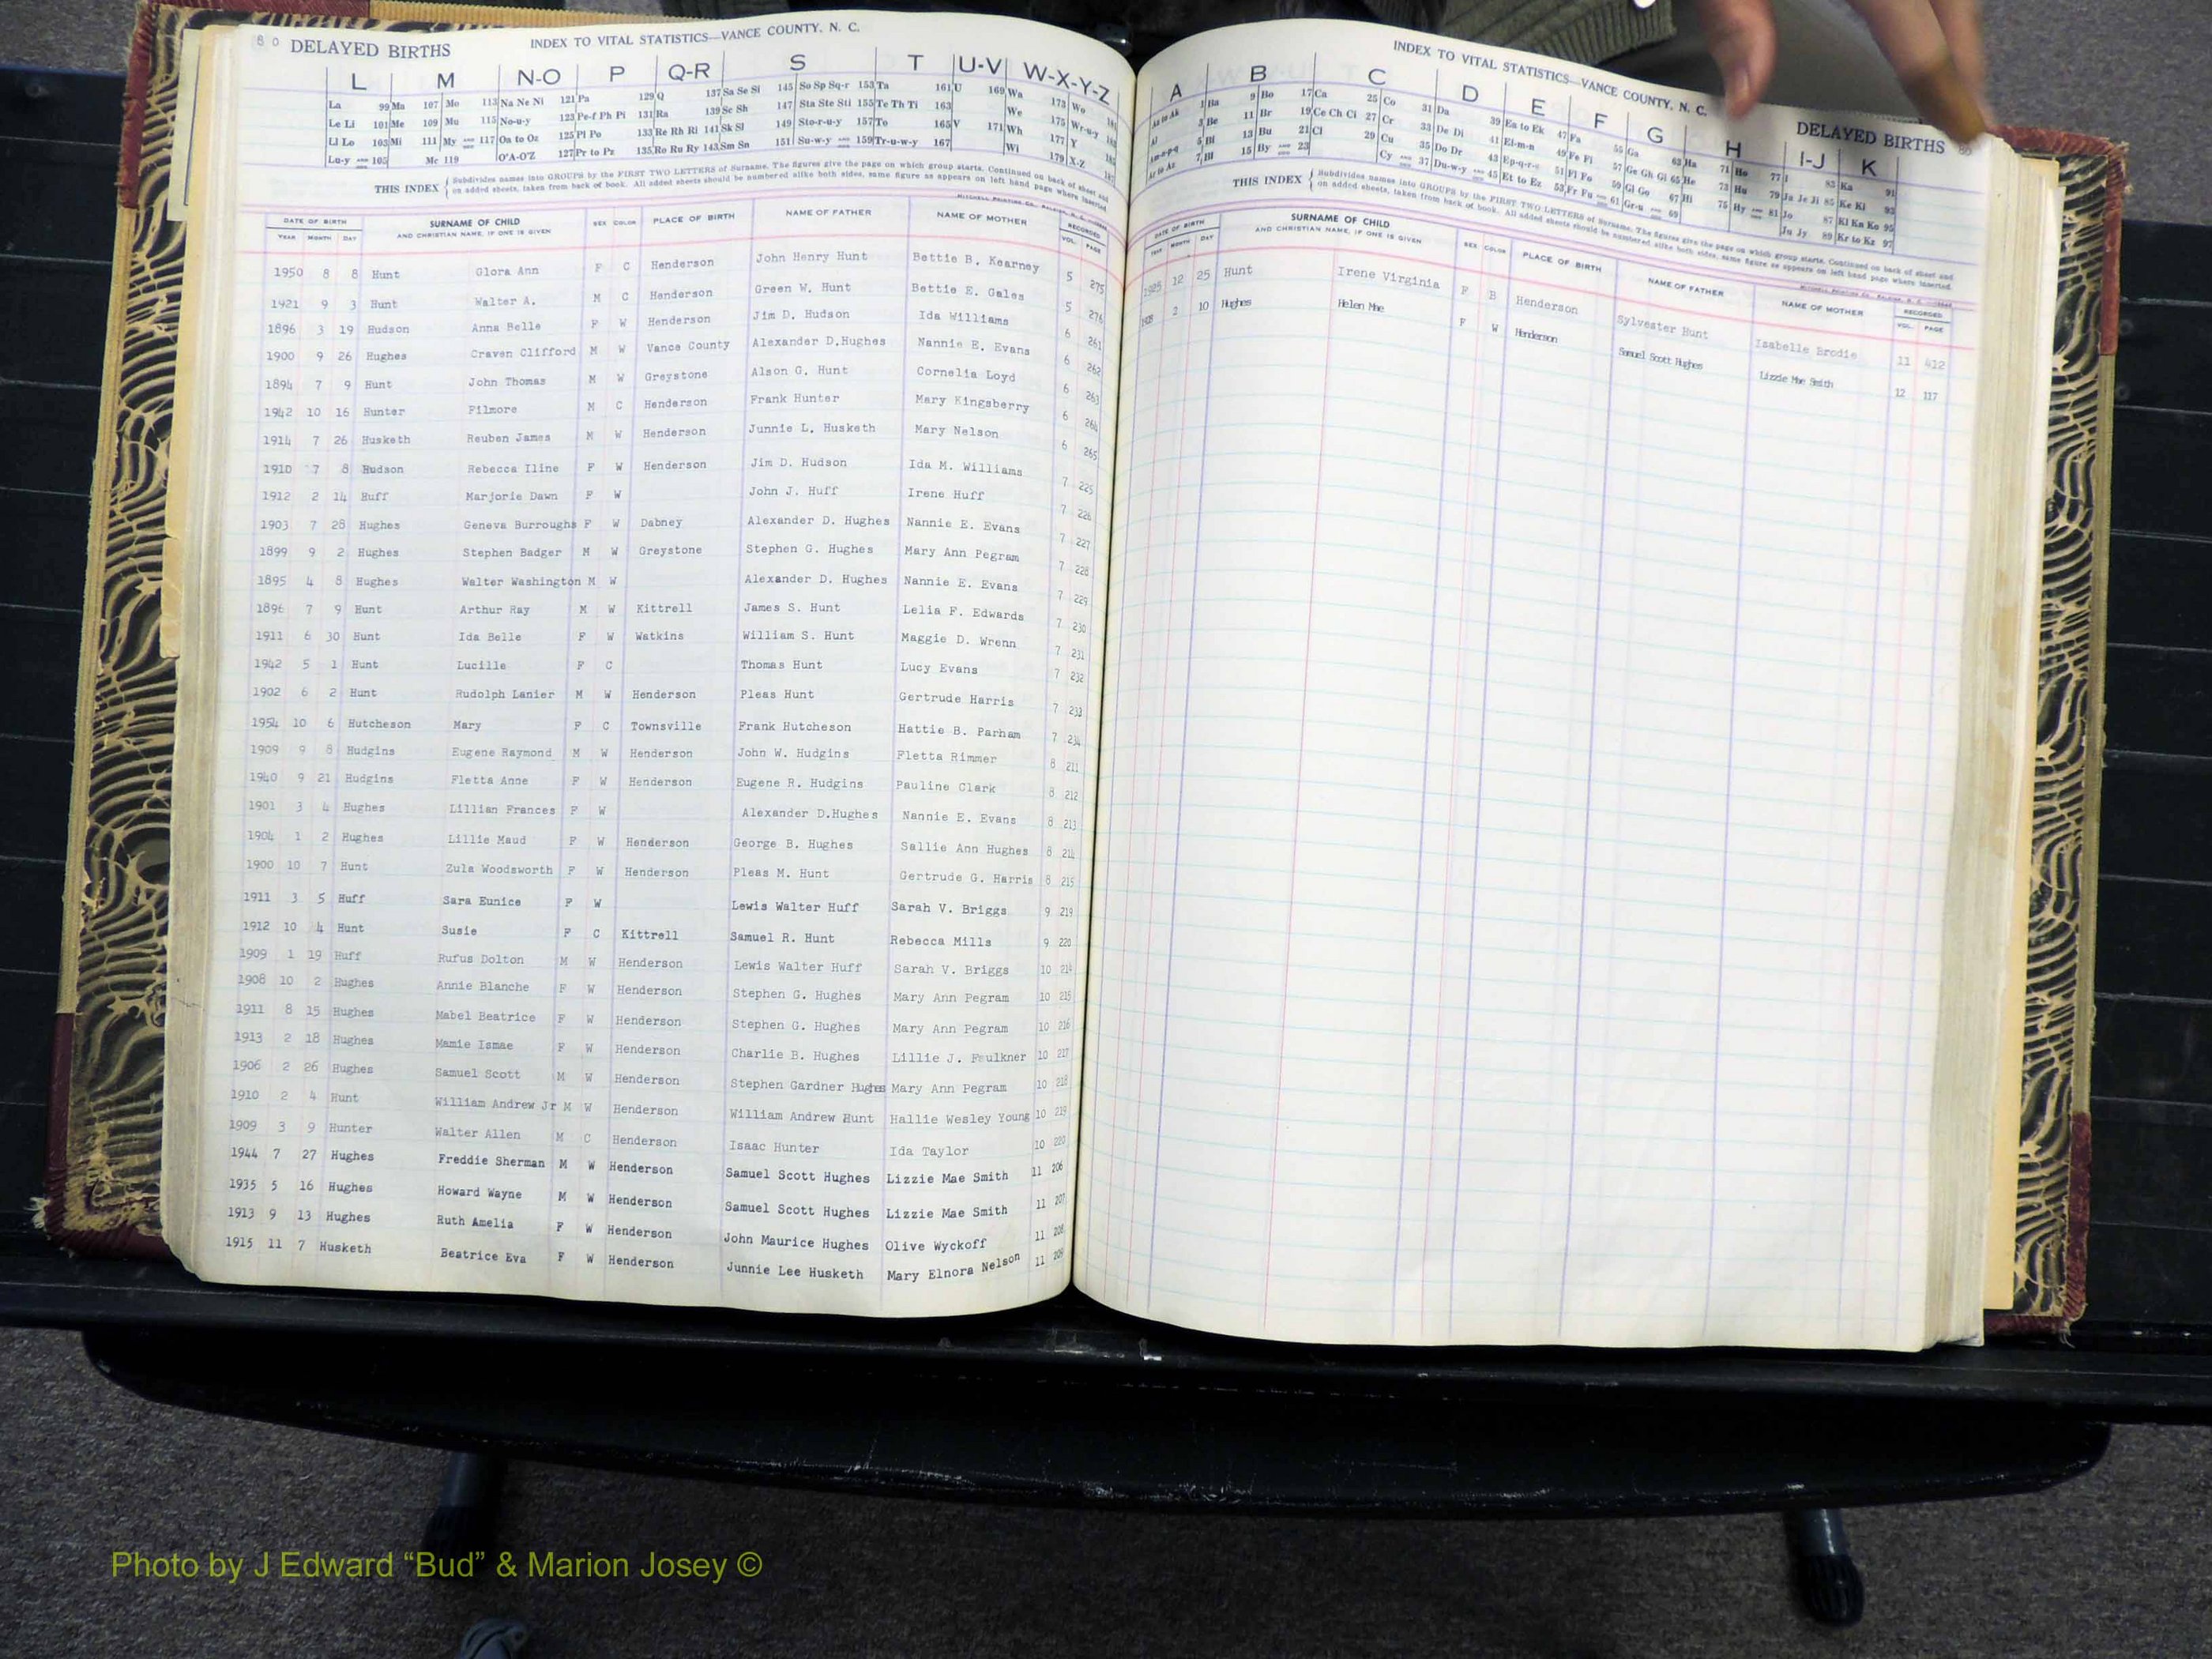 80 DELAYED BIRTHS INDEX TO VITAL STATISTICS—VANCE COUNTY, N. C.
L M N-O P Q-R S T U-V W-X-Y-Z
La 99 Ma 107 Mo 113 Na Ne Ni 121 Pa 129 Q 137 Sa Se Si 145 So Sp Sq-r 153 Ta 161 U 169 Wa 173 Wo
Le Li 101 Me 109 Mu 115 No-u-y 123 Pe-f Ph Pi 131 Ra 139 Sc Sh 147 Sta Ste Sti 155 Te Th Ti 163 We 175 Wr-u-y
Ll Lo 103 Mi 111 My 117 Oa to Oz 125 Pl Po 133 Re Rh Ri 141 Sk Sl 149 Sto-r-u-y 157 To 165 V 171 Wh 177 Y
Lu-y 105 Mc 119 O'A-O'Z 127 Pr to Pz 135 Ro Ru Ry 143 Sm Sn 151 Su-w-y 159 Tr-u-w-y 167 Wi 179 X-Z
THIS INDEX Subdivides names into GROUPS by the FIRST TWO LETTERS of Surname. The figures give the page on which group starts. Continued on back of sheet and
on added sheets, taken from back of book. All added sheets should be numbered alike both sides, same figure as appears on left hand page where inserted
DATE OF BIRTH SURNAME OF CHILD SEX COLOR PLACE OF BIRTH NAME OF FATHER NAME OF MOTHER RECORDED
YEAR MONTH DAY AND CHRISTIAN NAME, IF ONE IS GIVEN VOL. PAGE
1950 8 8 Hunt Glora Ann F C Henderson John Henry Hunt Bettie B. Kearney 5 275
1921 9 3 Hunt Walter A. M C Henderson Green W. Hunt Bettie E. Gales 5 276
1896 3 19 Hudson Anna Belle F W Henderson Jim D. Hudson Ida Williams 6 261
1900 9 26 Hughes Craven Clifford M W Vance County Alexander D.Hughes Nannie E. Evans 6 262
1894 7 9 Hunt John Thomas M W Greystone Alson G. Hunt Cornelia Loyd 6 263
1942 10 16 Hunter Filmore M C Henderson Frank Hunter Mary Kingsberry 6 264
1914 7 26 Husketh Reuben James M W Henderson Junnie L. Husketh Mary Nelson 6 265
1910 7 8 Hudson Rebecca Iline F W Henderson Jim D. Hudson Ida M. Williams 7 225
1912 2 14 Huff Marjorie Dawn F W John J. Huff Irene Huff 7 226
1903 7 28 Hughes Geneva Burroughs F W Dabney Alexander D. Hughes Nannie E. Evans 7 227
1899 9 2 Hughes Stephen Badger M W Greystone Stephen G. Hughes Mary Ann Pegram 7 228
1895 4 8 Hughes Walter Washington M W Alexander D. Hughes Nannie E. Evans 7 229
1896 7 9 Hunt Arthur Ray M W Kittrell James S. Hunt Lelia F. Edwards 7 230
1911 6 30 Hunt Ida Belle F W Watkins William S. Hunt Maggie D. Wrenn 7 231
1942 5 1 Hunt Lucille F C Thomas Hunt Lucy Evans 7 232
1902 6 2 Hunt Rudolph Lanier M W Henderson Pleas Hunt Gertrude Harris 7 233
1954 10 6 Hutcheson Mary F C Townsville Frank Hutcheson Hattie B. Parham 7 234
1909 9 8 Hudgins Eugene Raymond M W Henderson John W. Hudgins Fletta Rimmer 8 211
1940 9 21 Hudgins Fletta Anne F W Henderson Eugene R. Hudgins Pauline Clark 8 212
1901 3 4 Hughes Lillian Frances F W Alexander D.Hughes Nannie E. Evans 8 213
1904 1 2 Hughes Lillie Maud F W Henderson George B. Hughes Sallie Ann Hughes 8 214
1900 10 7 Hunt Zula Woodsworth F W Henderson Pleas M. Hunt Gertrude G. Harris 8 215
1911 3 5 Huff Sara Eunice F W Lewis Walter Huff Sarah V. Briggs 9 219
1912 10 4 Hunt Susie F C Kittrell Samuel R. Hunt Rebecca Mills 9 220
1909 1 19 Huff Rufus Dolton M W Henderson Lewis Walter Huff Sarah V. Briggs 10 214
1908 10 2 Hughes Annie Blanche F W Henderson Stephen G. Hughes Mary Ann Pegram 10 215
1911 8 15 Hughes Mabel Beatrice F W Henderson Stephen G. Hughes Mary Ann Pegram 10 216
1913 2 18 Hughes Mamie Ismae F W Henderson Charlie B. Hughes Lillie J. Faulkner 10 217
1906 2 26 Hughes Samuel Scott M W Henderson Stephen Gardner Hughes Mary Ann Pegram 10 218
1910 2 4 Hunt William Andrew Jr M W Henderson William Andrew Hunt Hallie Wesley Young 10 219
1909 3 9 Hunter Walter Allen M C Henderson Isaac Hunter Ida Taylor 10 220
1944 7 27 Hughes Freddie Sherman M W Henderson Samuel Scott Hughes Lizzie Mae Smith 11 206
1935 5 16 Hughes Howard Wayne M W Henderson Samuel Scott Hughes Lizzie Mae Smith 11 207
1913 9 13 Hughes Ruth Amelia F W Henderson John Maurice Hughes Olive Wyckoff 11 208
1915 11 7 Husketh Beatrice Eva F W Henderson Junnie Lee Husketh Mary Elnora Nelson 11 209
INDEX TO VITAL STATISTICS—VANCE COUNTY, N. C. DELAYED BIRTHS 80
A B C D E F G H I-J K
Aa to Ak 1 Ba 9 Bo 17 Ca 25 Co 31 Da 39 Ea to Ek 47 Fa 55 Ga 63 Ha 71 Ho 77 I 83 Ka 91
Al 3 Be 11 Br 19 Ce Ch Ci 27 Cr 33 De Di 41 El-m-n 49 Fe Fi 57 Ge Gh Gi 65 He 73 Hu 79 Ja Je Ji 85 Ke Ki 93
Am-n-p-q 5 Bi 13 Bu 21 Cl 29 Cu 35 Do Dr 43 Ep-q-r-s 51 Fl Fo 59 Gl Go 67 Hi 75 Hy 81 Jo 87 Kl Kn Ko 95
Ar to Az 7 Bl 15 By 23 Cy 37 Du-w-y 45 Et to Ez 53 Fr Fu 61 Gr-u 69 Ju Jy 89 Kr to Kz 97
THIS INDEX Subdivides names into GROUPS by the FIRST TWO LETTERS of Surname. The figures give the page on which group starts. Continued on back of sheet and
on added sheets, taken from back of book. All added sheets should be numbered alike both sides, same figure as appears on left hand page where inserted.
DATE OF BIRTH SURNAME OF CHILD SEX COLOR PLACE OF BIRTH NAME OF FATHER NAME OF MOTHER RECORDED
YEAR MONTH DAY AND CHRISTIAN NAME, IF ONE IS GIVEN VOL. PAGE
1925 12 25 Hunt Irene Virginia F B Henderson Sylvester Hunt Isabelle Brodie 11 412
2 10 Hughes Helen Mae F W Henderson Samuel Scott Hughes Lizzie Mae Smith 12 117
Photo by J Edward “Bud” & Marion Josey ©